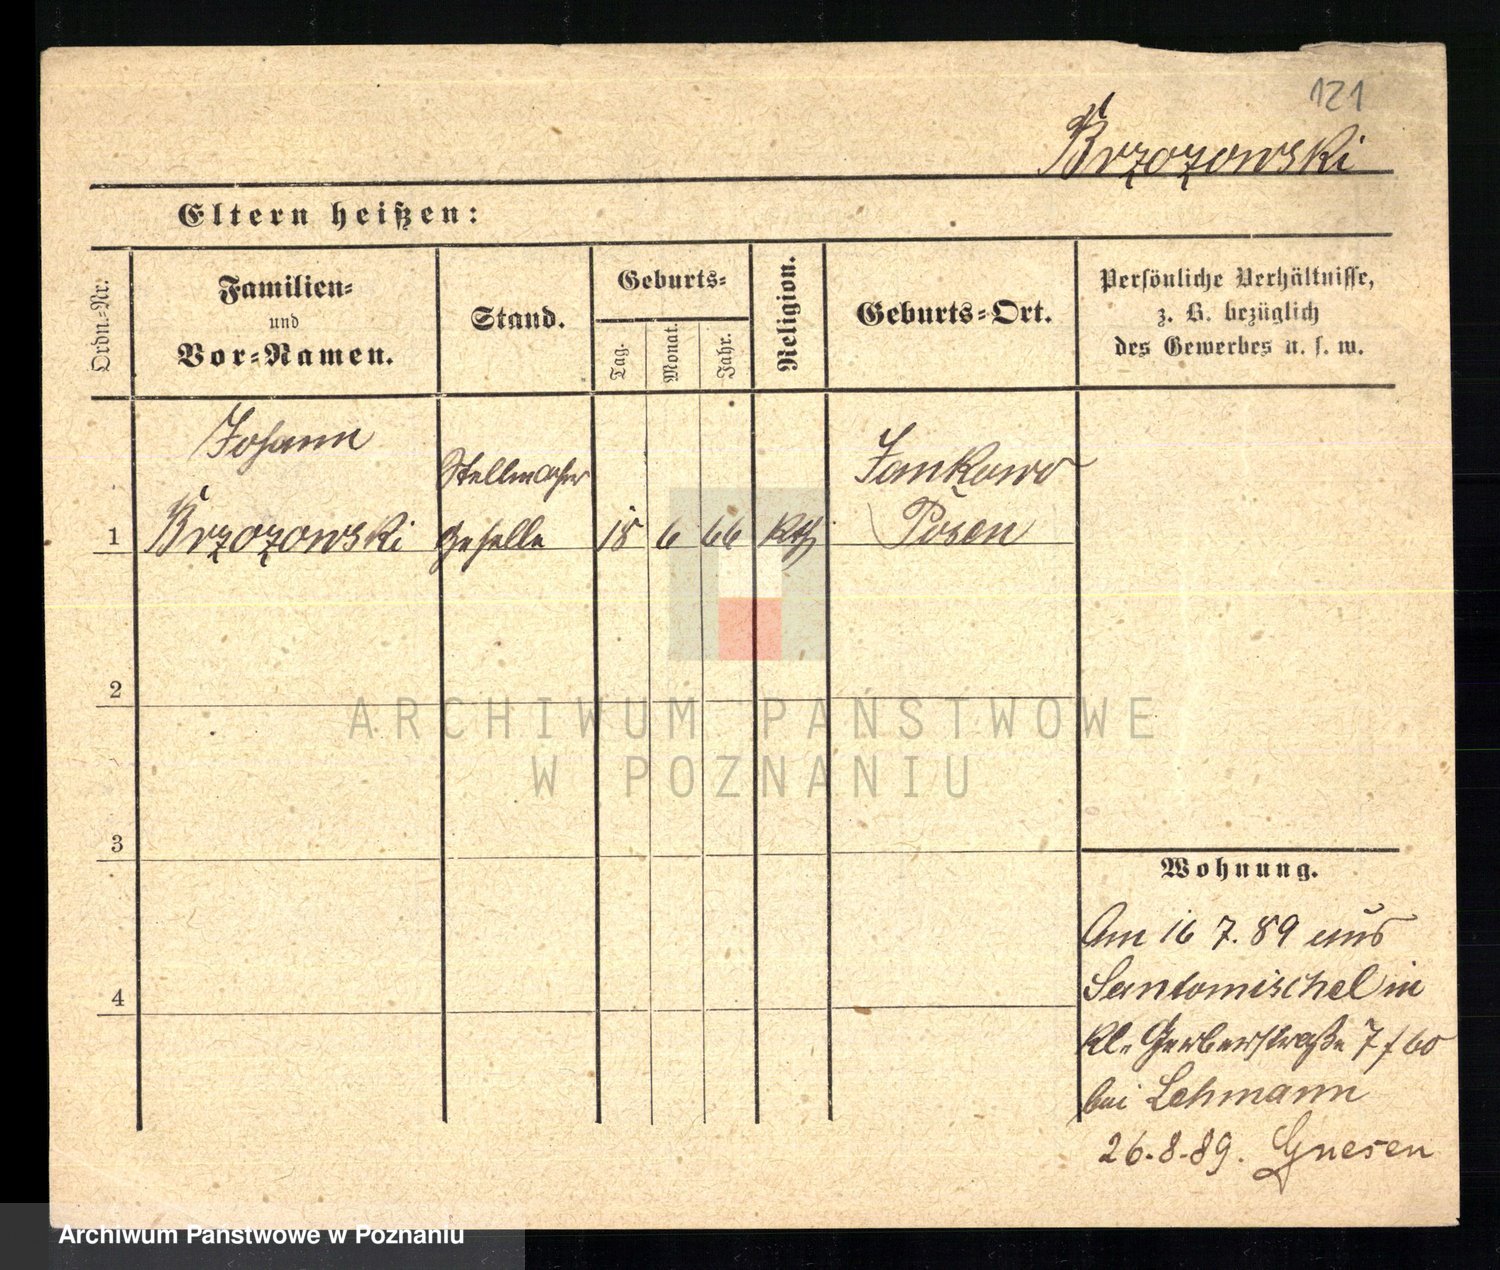 121
Brzozowski
Eltern heißen:
Ordn.-Nr.
Familien-
und
Vor-Namen.
Stand.
Geburts-
Tag.
Monat.
Jahr.
Religion.
Geburts-Ort.
Persönliche Verhältnisse,
z. B. bezüglich
des Gewerbes u. s. w.
Johann
Stellmacher
Jankowo
1 Brzozowski Geselle 18 6 66 Kth Posen
2
3
4
Wohnung.
Am 16 7. 89 aus
Santomischel in
Kl. Gerberstraße 7/60
bei Lehmann
26.8.89. Gnesen
ARCHIWUM PAŃSTWOWE
W POZNANIU
Archiwum Państwowe w Poznaniu